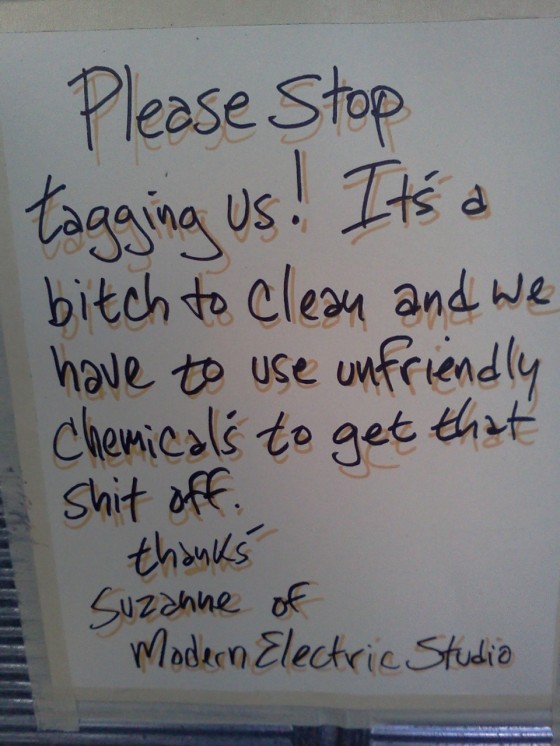 Please Stop
tagging us! It's a
bitch to clean and we
have to use unfriendly
chemicals to get that
shit off.
thanks
Suzanne of
Modern Electric Studio